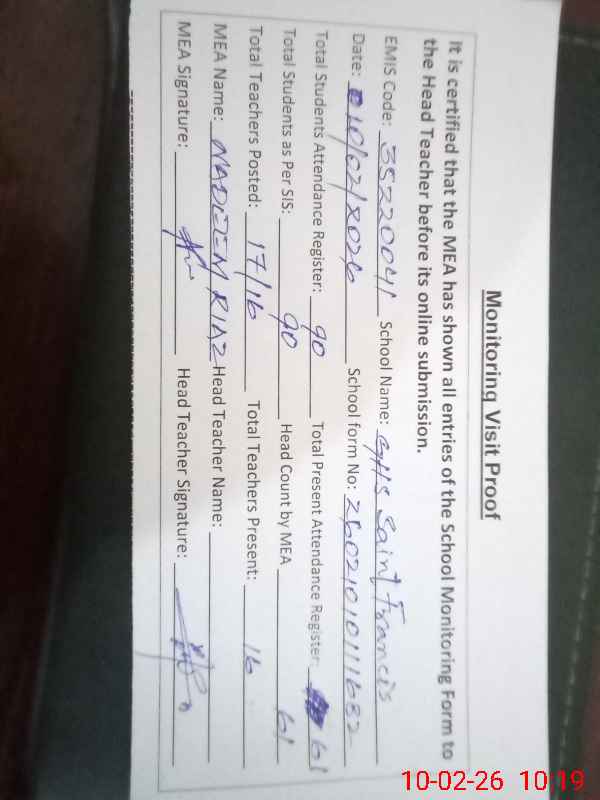 Monitoring Visit Proof
It is certified that the MEA has shown all entries of the School Monitoring Form to
the Head Teacher before its online submission.
EMIS Code: 35220041 School Name: GHS Saint Francis
Date: 10/02/2026 School form No: 26021010111682
Total Students Attendance Register: 90 Total Present Attendance Register: 61
Total Students as Per SIS: 90 Head Count by MEA 61
Total Teachers Posted: 17/16 Total Teachers Present: 16
MEA Name: NADEEM RIAZ Head Teacher Name:
MEA Signature: Head Teacher Signature:
10-02-26 10:19